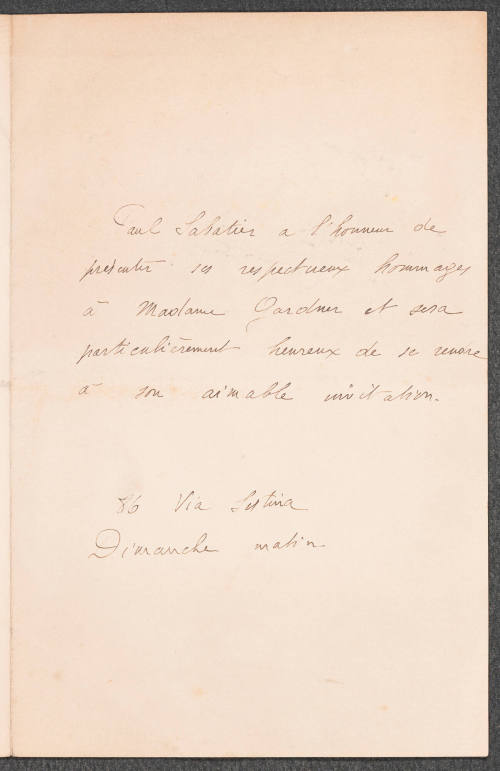 Paul Sabatier a l'honneur de
présenter ses respectueux hommages
à Madame Gardner et sera
particulièrement heureux de se rendre
à son aimable invitation.
86 Via Sistina
Dimanche matin